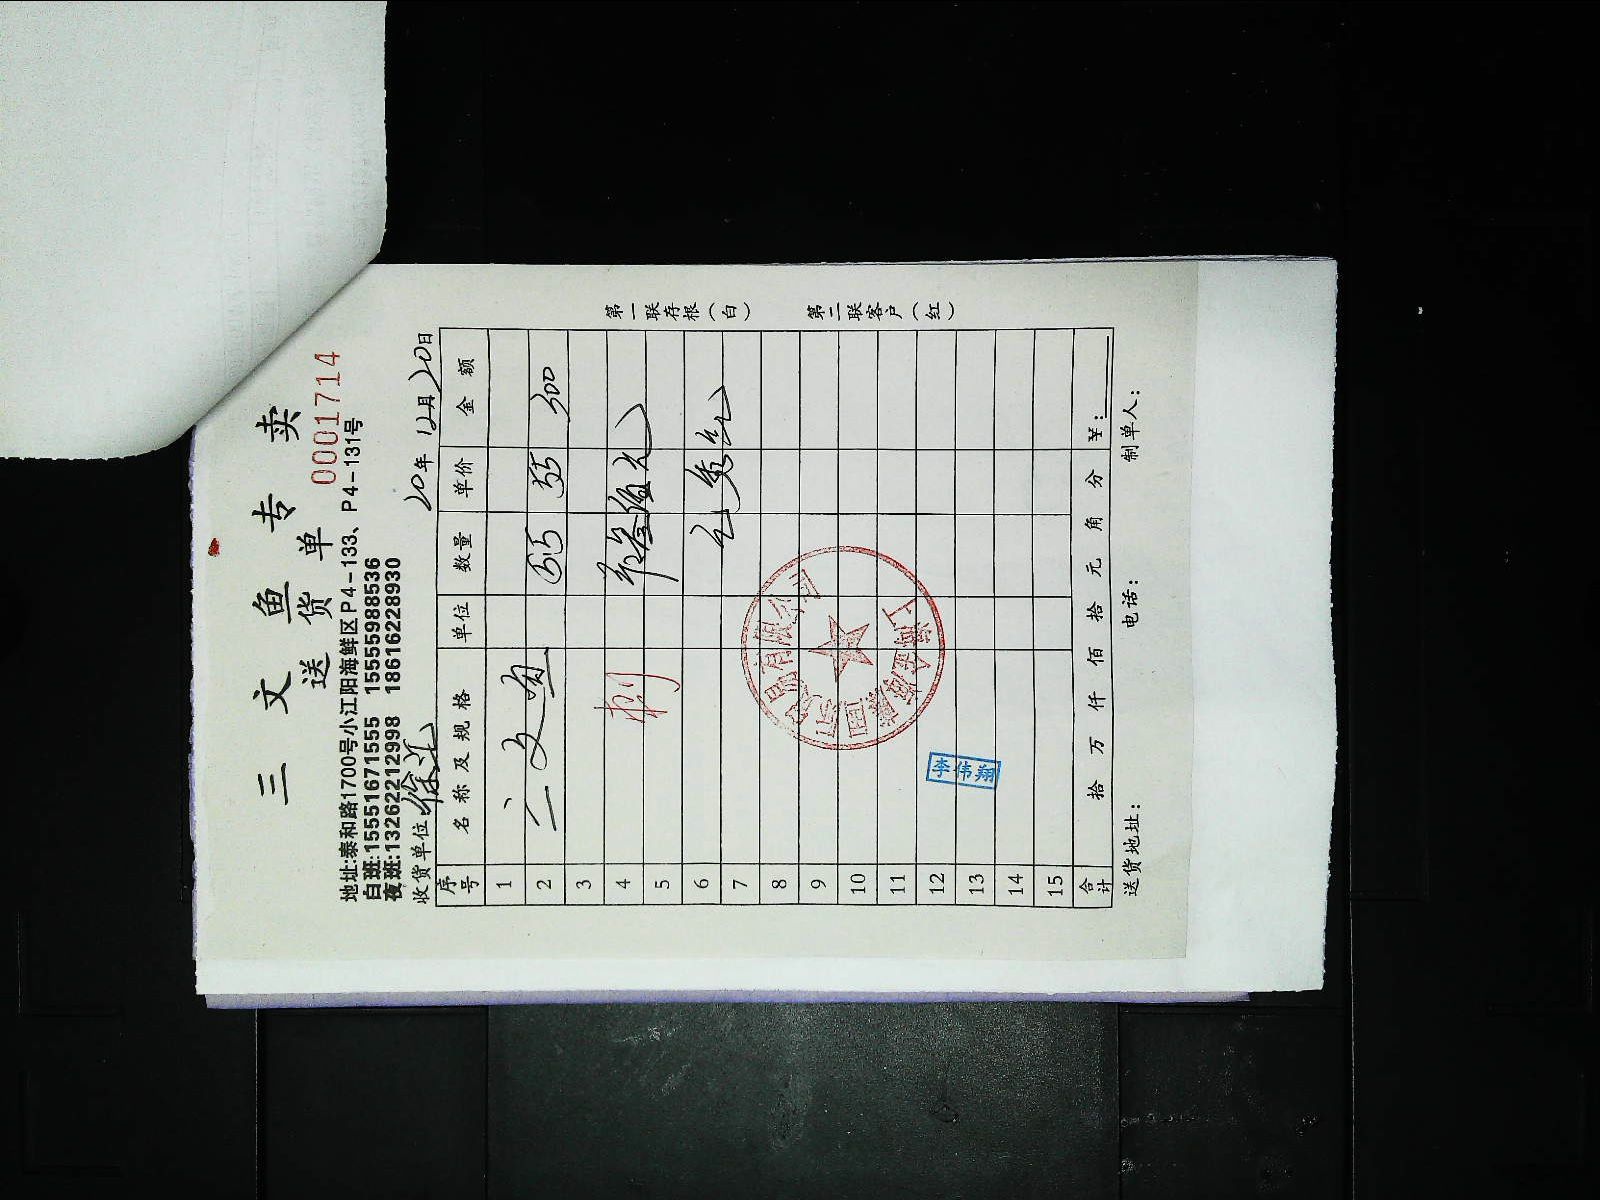 三文鱼专卖
送货单
0001714
地址:泰和路1700号小江阳海鲜区P4-133、P4-131号
白班:15551671555 15555988536
夜班:13262212998 18616228930
收货单位 徐汇 20年12月20日
序号 名称及规格 单位 数量 单价 金额
1
2 三文鱼 5.5 55 300
3
4
5
6
7
8
9
10
11
12
13
14
15
合计 拾 万 仟 佰 拾 元 角 分 ¥:
送货地址: 电话: 制单人:
第一联存根(白) 第二联客户(红)
李伟翔